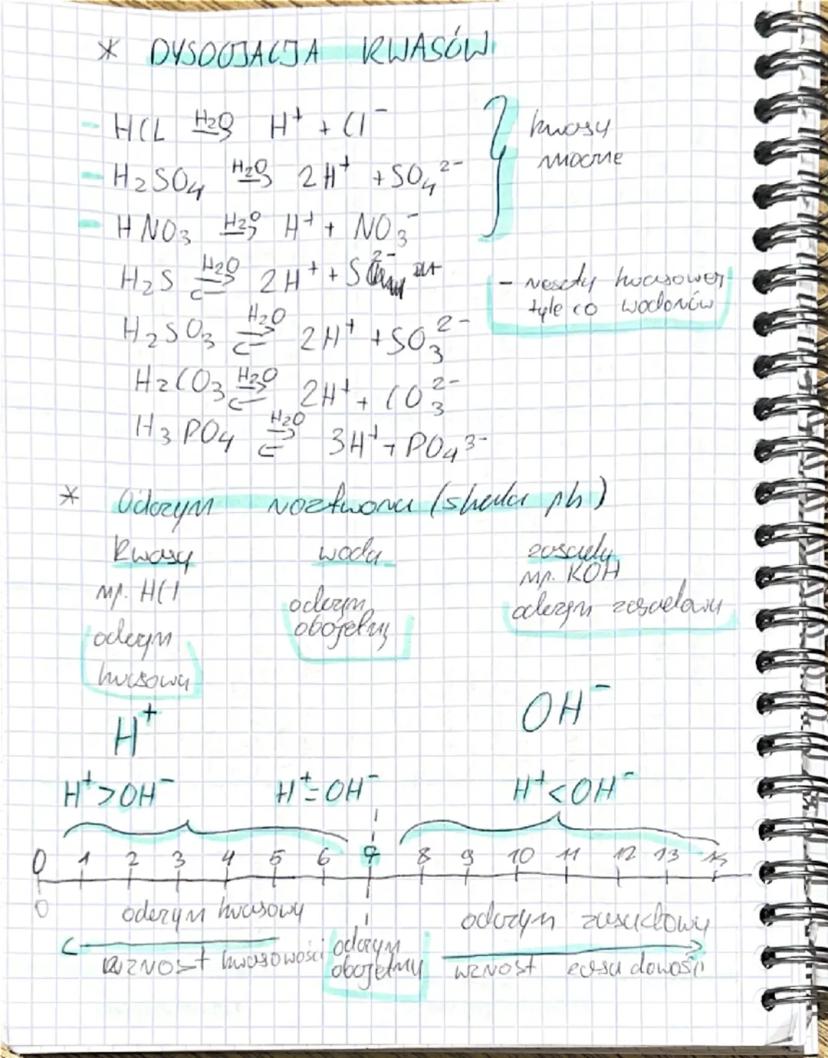 * DYSOCJACJA KWASÓW
- HCL H₂O→ H⁺ + Cl⁻
- H₂SO₄ H₂O→ 2H⁺ + SO₄²⁻
- HNO₃ H₂O→ H⁺ + NO₃⁻
kwasy
mocne
H₂S H₂O⇄ 2H⁺ + S²⁻
H₂SO₃ H₂O⇄ 2H⁺ + SO₃²⁻
H₂CO₃ H₂O⇄ 2H⁺ + CO₃²⁻
H₃PO₄ H₂O⇄ 3H⁺ + PO₄³⁻
- reszty kwasowej
tyle co wodorów
* Odczyn roztworu (skala ph)
Kwasy woda zasady
np. HCl np. KOH
odczyn kwasowy
odczyn obojętny
odczyn zasadowy
H⁺ OH⁻
H⁺>OH⁻ H⁺=OH⁻ H⁺<OH⁻
0 1 2 3 4 5 6 7 8 9 10 11 12 13
0
odczyn kwasowy odczyn zasadowy
wzrost kwasowości odczyn obojętny wzrost zasadowości